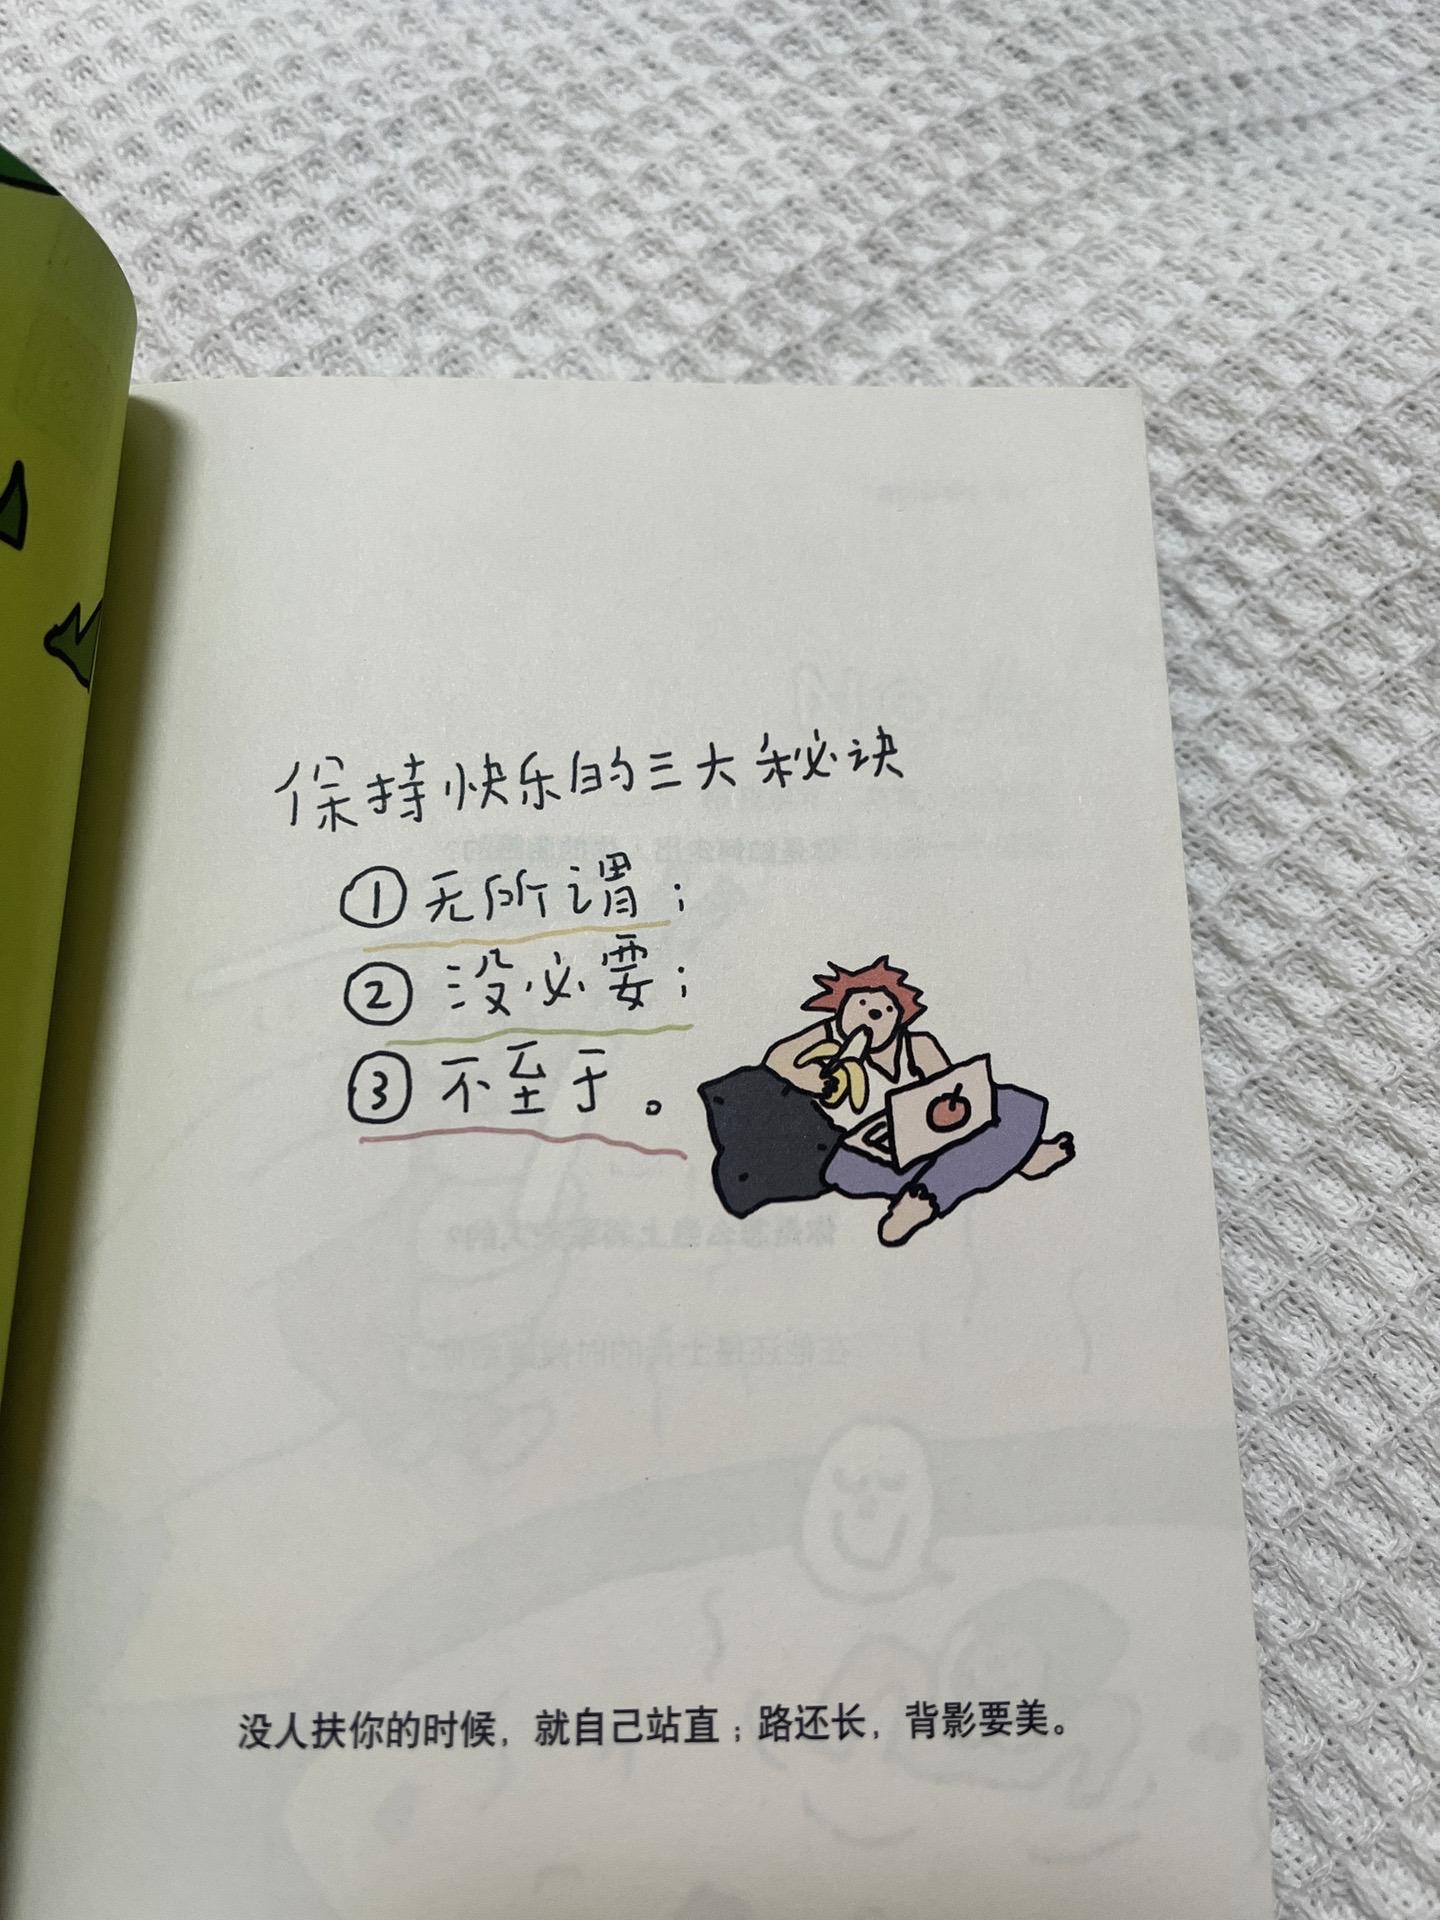 保持快乐的三大秘诀
①无所谓；
②没必要；
③不至于。
没人扶你的时候，就自己站直；路还长，背影要美。